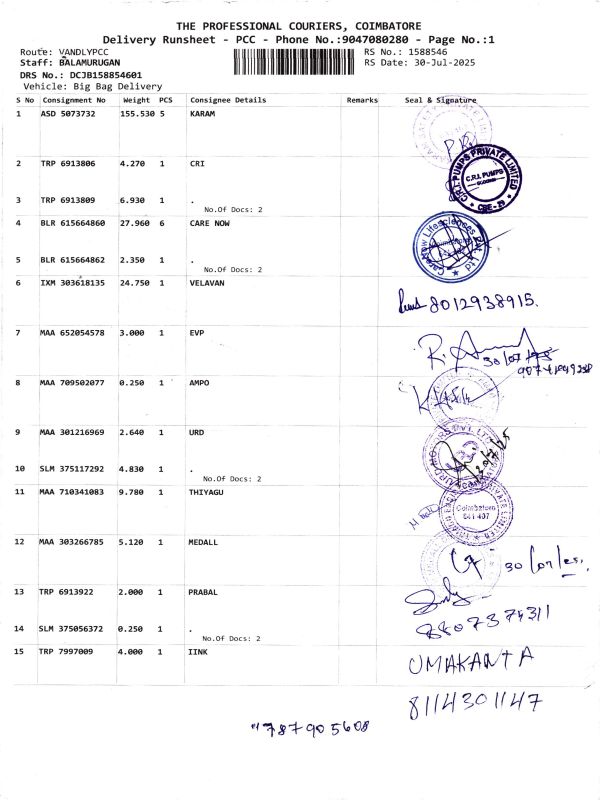 THE PROFESSIONAL COURIERS, COIMBATORE
Delivery Runsheet - PCC - Phone No.:9047080280 - Page No.:1
Route: VANDLYPCC RS No.: 1588546
Staff: BALAMURUGAN RS Date: 30-Jul-2025
DRS No.: DCJB158854601
Vehicle: Big Bag Delivery
S No Consignment No Weight PCS Consignee Details Remarks Seal & Signature
1 ASD 5073732 155.530 5 KARAM
2 TRP 6913806 4.270 1 CRI
C.R.I. PUMPS PRIVATE LIMITED
C.R.I. PUMPS
CBE-29
3 TRP 6913809 6.930 1 .
No.Of Docs: 2
4 BLR 615664860 27.960 6 CARE NOW
5 BLR 615664862 2.350 1 .
No.Of Docs: 2
6 IXM 303618135 24.750 1 VELAVAN
8012938915.
7 MAA 652054578 3.000 1 EVP
30/07/25
8 MAA 709502077 0.250 1 AMPO
9 MAA 301216969 2.640 1 URD
30/7/25
10 SLM 375117292 4.830 1 .
No.Of Docs: 2
11 MAA 710341083 9.780 1 THIYAGU
Coimbatore
641 407
12 MAA 303266785 5.120 1 MEDALL
30/07/25.
13 TRP 6913922 2.000 1 PRABAL
8807374311
14 SLM 375056372 0.250 1 .
No.Of Docs: 2
15 TRP 7997009 4.000 1 IINK
UMAKANTA
8114301147
787905608